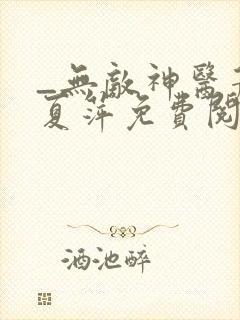 _無敵神醫
夏萍免費閱
酒池醉